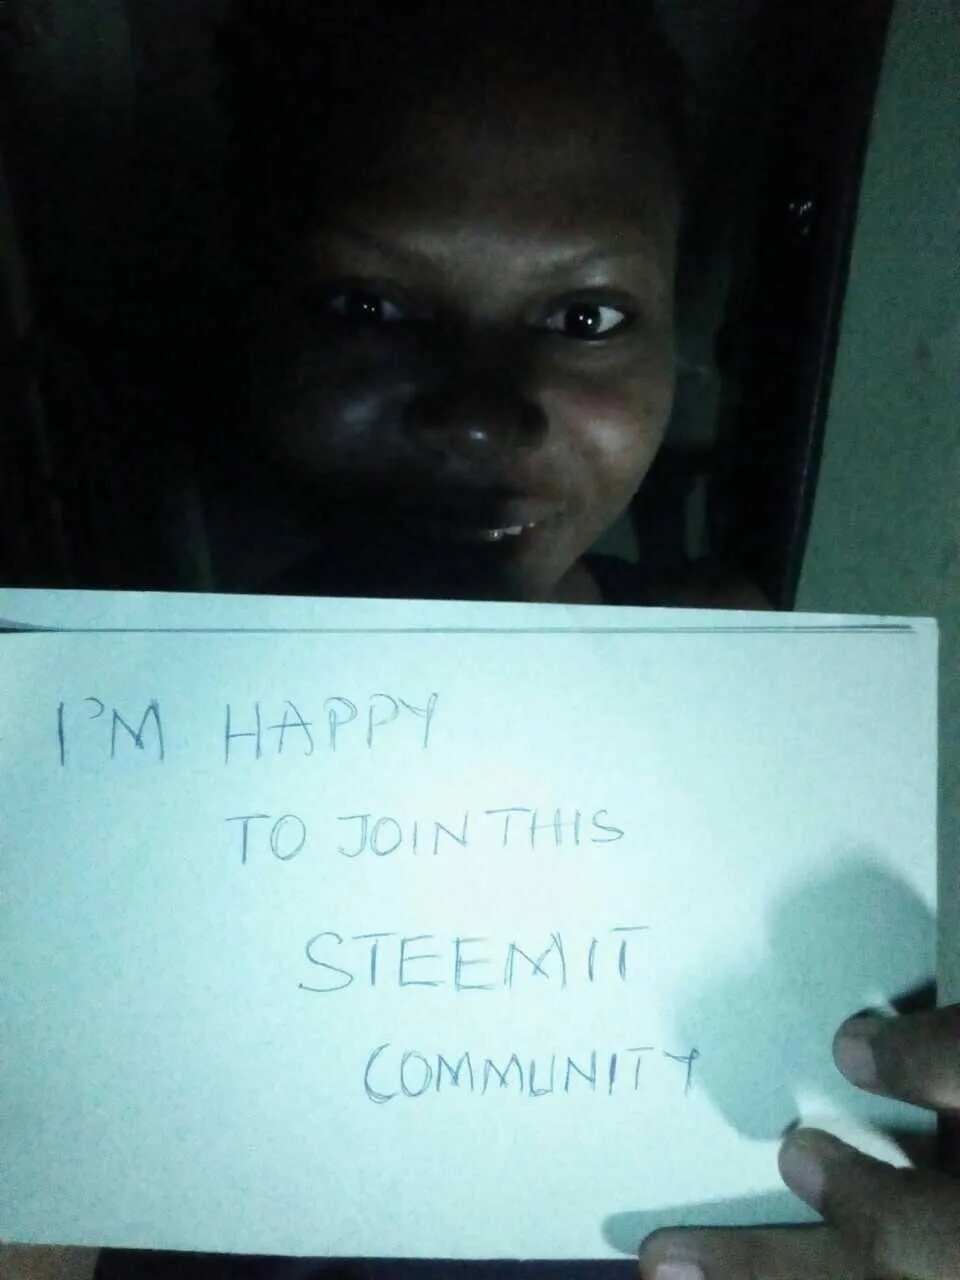 I'M HAPPY
TO JOIN THIS
STEEMIT
COMMUNITY